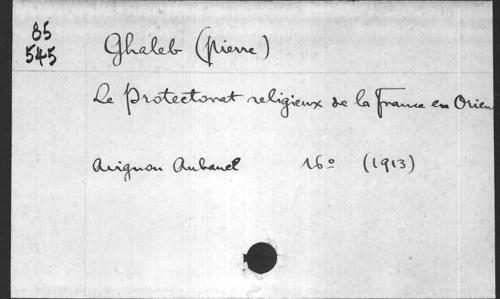 85
545
Ghaleb (pierre)
Le Protectorat religieux de la France en Orien
Avignon Aubanel 16º (1913)